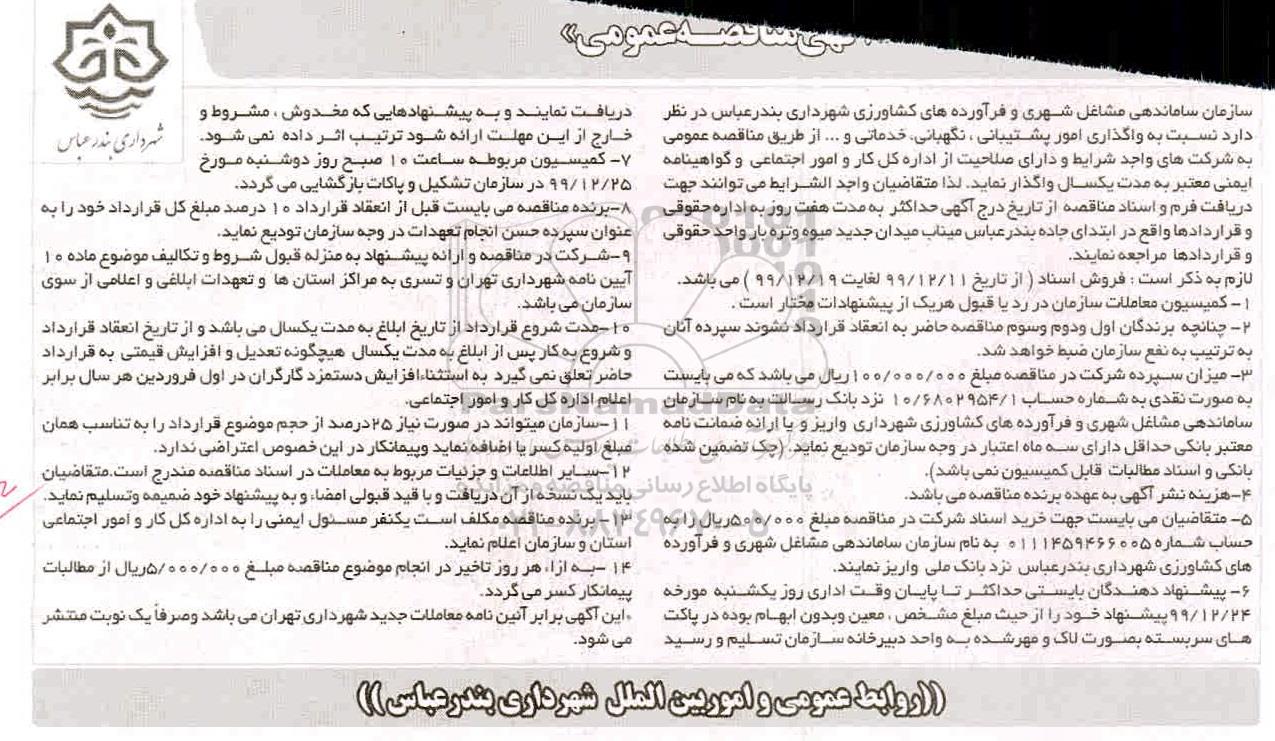 آگهی مناقصه عمومی»
شهرداری بندرعباس
سازمان ساماندهی مشاغل شهری و فرآورده های کشاورزی شهرداری بندرعباس در نظر
دارد نسبت به واگذاری امور پشتیبانی ، نگهبانی، خدماتی و ... از طریق مناقصه عمومی
به شرکت های واجد شرایط و دارای صلاحیت از اداره کل کار و امور اجتماعی و گواهینامه
ایمنی معتبر به مدت یکسال واگذار نماید. لذا متقاضیان واجد الشرایط می توانند جهت
دریافت فرم و اسناد مناقصه از تاریخ درج آگهی حداکثر به مدت هفت روز به اداره حقوقی
و قراردادها واقع در ابتدای جاده بندرعباس میناب میدان جدید میوه وتره بار واحد حقوقی
و قراردادها مراجعه نمایند.
لازم به ذکر است : فروش اسناد ( از تاریخ ۹۹/۱۲/۱۱ لغایت ۹۹/۱۲/۱۹ ) می باشد.
۱- کمیسیون معاملات سازمان در رد یا قبول هریک از پیشنهادات مختار است .
۲- چنانچه برندگان اول ودوم وسوم مناقصه حاضر به انعقاد قرارداد نشوند سپرده آنان
به ترتیب به نفع سازمان ضبط خواهد شد.
۳- میزان سپرده شرکت در مناقصه مبلغ ۱۰۰/۰۰۰/۰۰۰ریال می باشد که می بایست
به صورت نقدی به شماره حساب ۱۰/۶۸۰۲۹۵۴/۱ نزد بانک رسالت به نام سازمان
ساماندهی مشاغل شهری و فرآورده های کشاورزی شهرداری واریز و یا ارائه ضمانت نامه
معتبر بانکی حداقل دارای سه ماه اعتبار در وجه سازمان تودیع نماید. (چک تضمین شده
بانکی و اسناد مطالبات قابل کمیسیون نمی باشد).
۴-هزینه نشر آگهی به عهده برنده مناقصه می باشد.
۵- متقاضیان می بایست جهت خرید اسناد شرکت در مناقصه مبلغ ۵۰۰/۰۰۰ریال را به
حساب شماره ۰۱۱۱۴۵۹۴۶۶۰۰۵ به نام سازمان ساماندهی مشاغل شهری و فرآورده
های کشاورزی شهرداری بندرعباس نزد بانک ملی واریز نمایند.
۶- پیشنهاد دهندگان بایستی حداکثر تا پایان وقت اداری روز یکشنبه مورخه
۹۹/۱۲/۲۴پیشنهاد خود را از حیث مبلغ مشخص ، معین وبدون ابهام بوده در پاکت
های سربسته بصورت لاک و مهرشده به واحد دبیرخانه سازمان تسلیم و رسید
دریافت نمایند و به پیشنهادهایی که مخدوش ، مشروط و
خارج از این مهلت ارائه شود ترتیب اثر داده نمی شود.
۷- کمیسیون مربوطه ساعت ۱۰ صبح روز دوشنبه مورخ
۹۹/۱۲/۲۵ در سازمان تشکیل و پاکات بازگشایی می گردد.
۸-برنده مناقصه می بایست قبل از انعقاد قرارداد ۱۰ درصد مبلغ کل قرارداد خود را به
عنوان سپرده حسن انجام تعهدات در وجه سازمان تودیع نماید.
۹-شرکت در مناقصه و ارائه پیشنهاد به منزله قبول شروط و تکالیف موضوع ماده ۱۰
آیین نامه شهرداری تهران و تسری به مراکز استان ها و تعهدات ابلاغی و اعلامی از سوی
سازمان می باشد.
۱۰-مدت شروع قرارداد از تاریخ ابلاغ به مدت یکسال می باشد و از تاریخ انعقاد قرارداد
و شروع به کار پس از ابلاغ به مدت یکسال هیچگونه تعدیل و افزایش قیمتی به قرارداد
حاضر تعلق نمی گیرد به استثناءافزایش دستمزد کارگران در اول فروردین هر سال برابر
اعلام اداره کل کار و امور اجتماعی.
۱۱-سازمان میتواند در صورت نیاز ۲۵درصد از حجم موضوع قرارداد را به تناسب همان
مبلغ اولیه کسر یا اضافه نماید وپیمانکار در این خصوص اعتراضی ندارد.
۱۲-سایر اطلاعات و جزئیات مربوط به معاملات در اسناد مناقصه مندرج است.متقاضیان
باید یک نسخه از آن دریافت و با قید قبولی امضاء و به پیشنهاد خود ضمیمه وتسلیم نماید.
۱۳-برنده مناقصه مکلف است یکنفر مسئول ایمنی را به اداره کل کار و امور اجتماعی
استان و سازمان اعلام نماید.
۱۴ -به ازاء هر روز تاخیر در انجام موضوع مناقصه مبلغ ۵/۰۰۰/۰۰۰ریال از مطالبات
پیمانکار کسر می گردد.
*این آگهی برابر آئین نامه معاملات جدید شهرداری تهران می باشد وصرفاً یک نوبت منتشر
می شود.
ParsNamadData
پایگاه اطلاع رسانی مناقصه و مزایده
((روابط عمومی و اموربین الملل شهرداری بندرعباس))